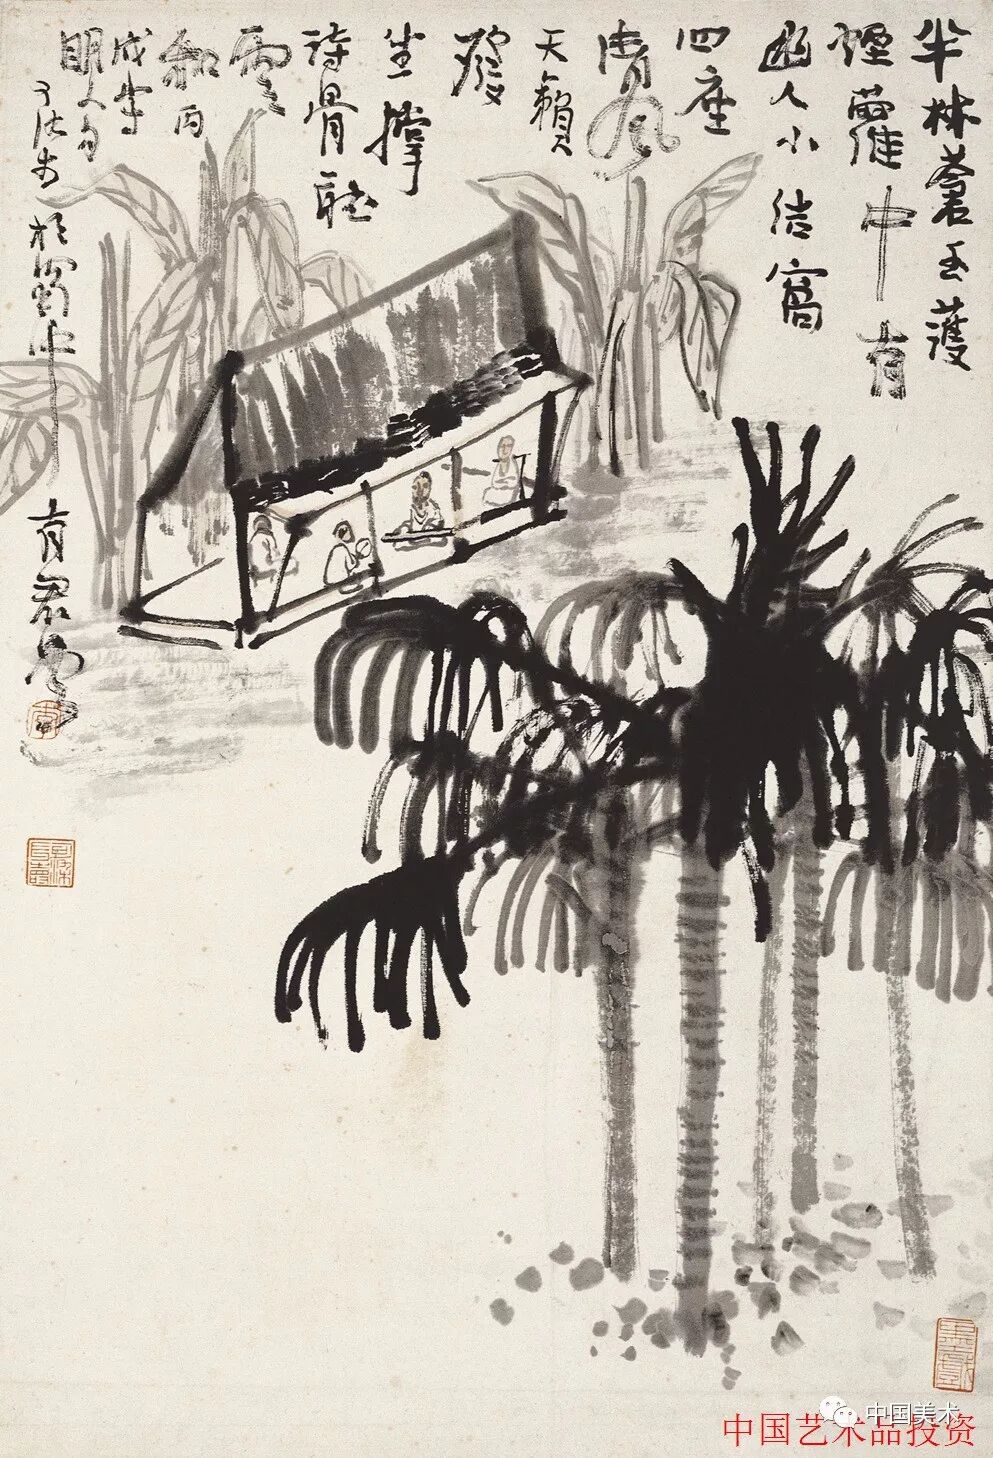 半林蒼玉護
煙蘿中有
幽人小結窩
四座
清風
天籟
發
坐撐
詩骨聽
雲
和丙
戌寫
明人句
於蜀中
中国美术
中国艺术品投资